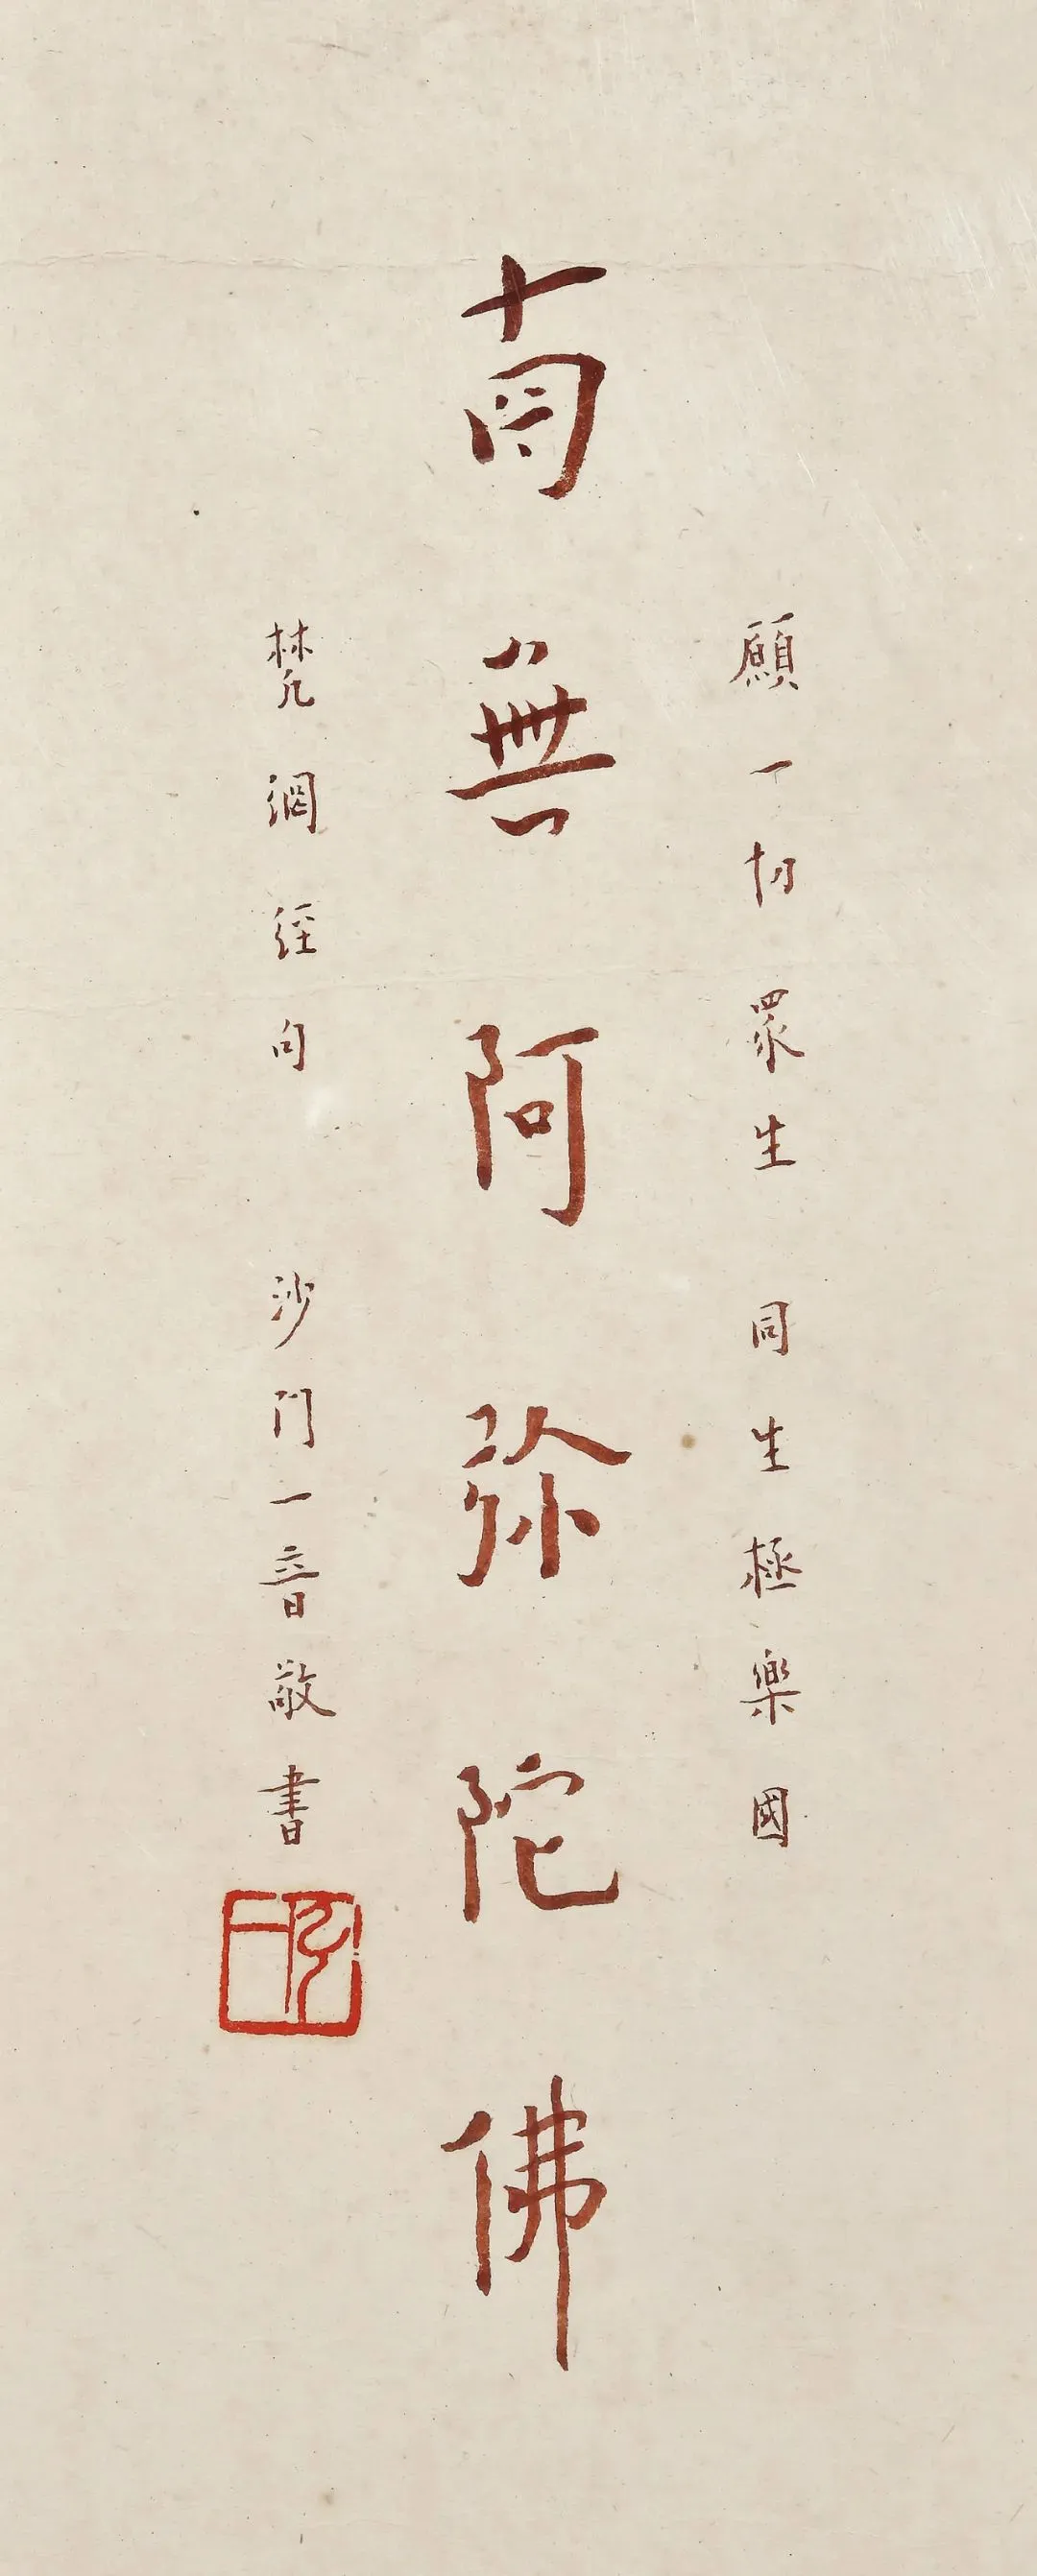 願一切眾生 同生極樂國
南無阿弥陀佛
梵網經句 沙門一音敬書